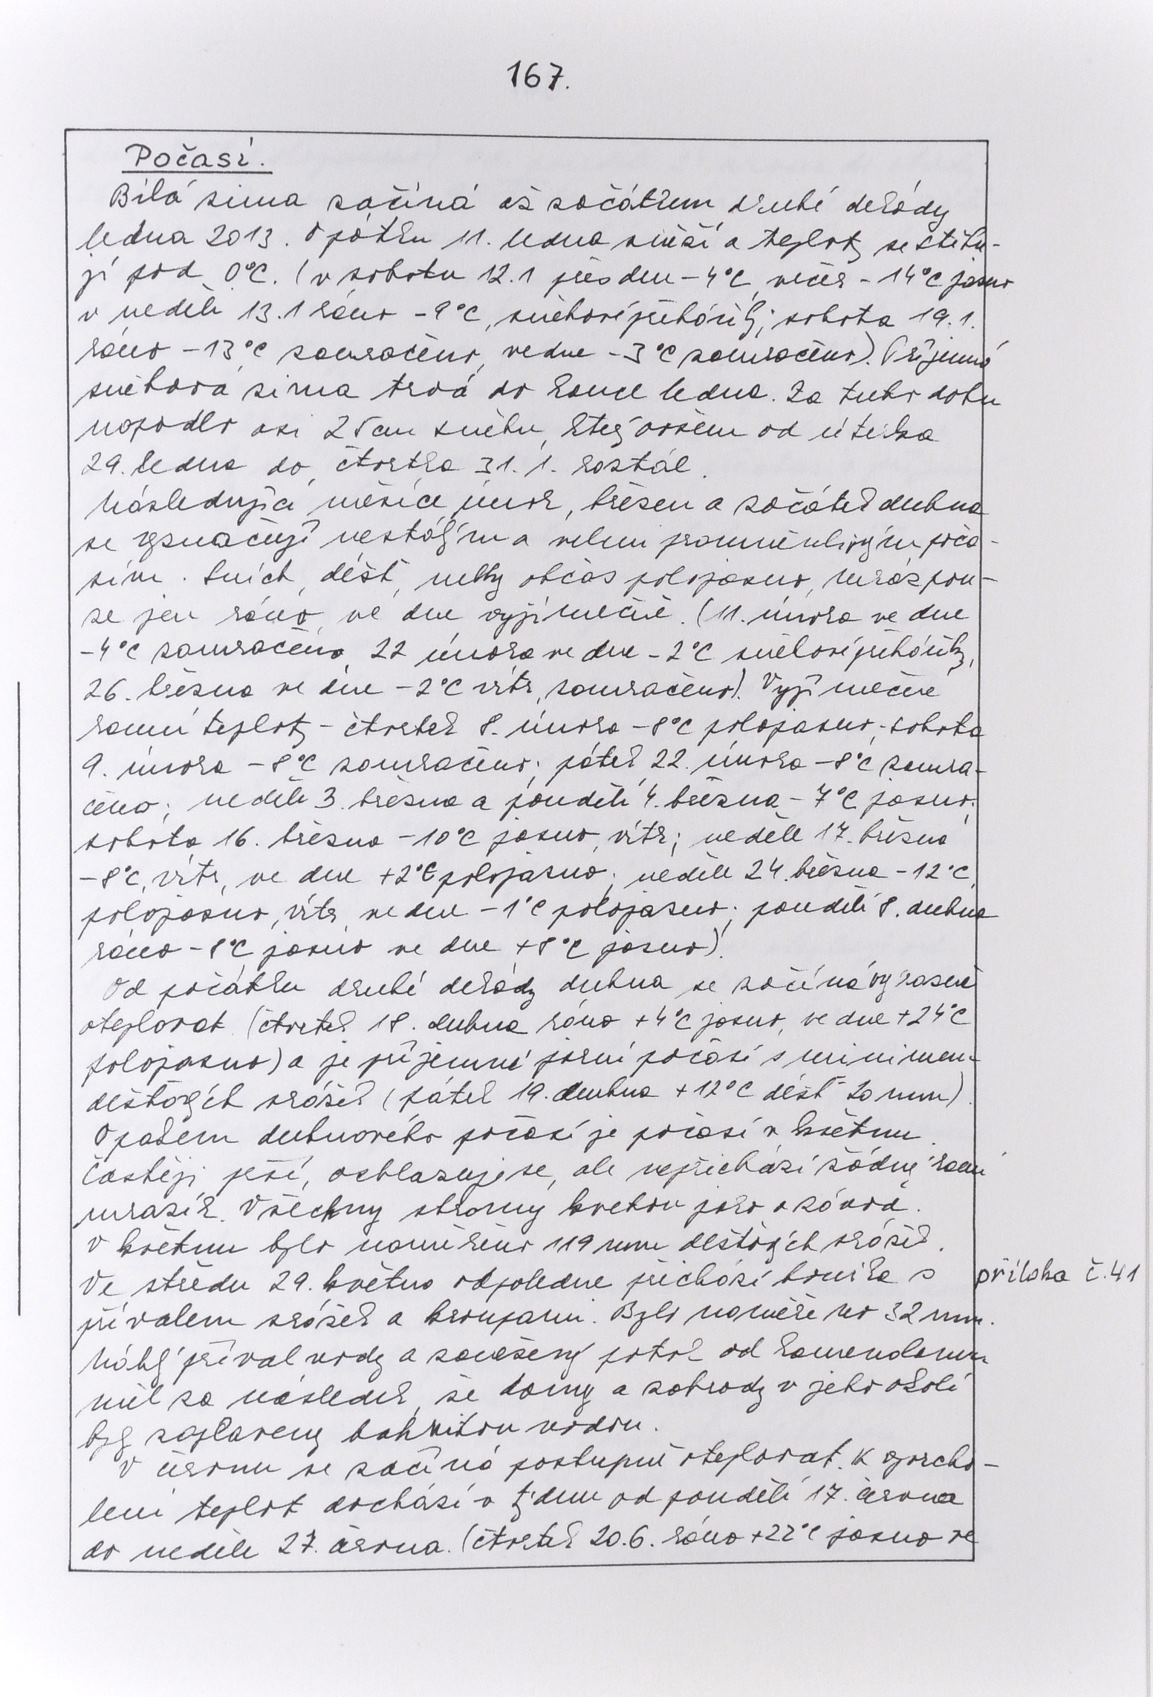 167.
Počasí.
Bílá zima začíná až začátkem druhé dekády
ledna 2013. V pátku 11. ledna sněží a teploty se
jí pod 0°C. (v sobotu 12.1 přes den -4°C, večer -14°C jasno
v neděli 13.1 ráno -9°C, sněhové přeháňky; sobota 19.1.
ráno -13°C zamračeno, ve dne -3°C zamračeno). Příjemná
sněhová zima trvá do konce ledna. Za tuto dobu
napadlo asi 25cm sněhu, který ovšem od úterka
29. ledna do čtvrtka 31.1. roztál.
Následující měsíce únor, březen a začátek dubna
se vyznačují nestálým a velmi proměnlivým poča-
sím. Sníh, déšť, mlhy občas polojasno, mráz pou-
ze jen ráno, ve dne vyjímečně. (11. února ve dne
-4°C zamračeno, 22 února ve dne -2°C sněhové přeháňky,
26. března ve dne -2°C vítr, zamračeno). Vyjímečné
ranní teploty - čtvrtek 8. února -8°C polojasno, sobota
9. února -8°C zamračeno; pátek 22. února -8°C zamra-
čeno; neděli 3. března a pondělí 4. března -7°C jasno;
sobota 16. března -10°C jasno, vítr; neděle 17. března
-8°C, vítr, ve dne +2°C polojasno; neděle 24. března -12°C,
polojasno, vítr, ve dne -1°C polojasno; pondělí 8. dubna
ráno -8°C jasno ve dne +8°C jasno).
Od počátku druhé dekády dubna se začíná výrazně
oteplovat (čtvrtek 18. dubna ráno +4°C jasno, ve dne +24°C
polojasno) a je příjemné jarní počasí s minimem
dešťových srážek (pátek 19. dubna +12°C déšť 20 mm).
Opakem dubnového počasí je počasí v květnu.
Častěji prší, ochlazuje se, ale nepřichází žádný ranní
mrazík. Všechny stromy kvetou jako o závod.
V květnu bylo naměřeno 119 mm dešťových srážek.
Ve středu 29. května odpoledne přichází bouřka s
příloha č.41
přívalem srážek a kroupami. Bylo naměřeno 32 mm.
Náhlý příval vody a zanešený potok od
měl za následek, že domy a zahrady v jeho okolí
byly zaplaveny bahnitou vodou.
V červnu se začíná postupně oteplovat. K vyvrcho-
lení teplot dochází v týdnu od pondělí 17. června
do neděle 27. června. (čtvrtek 20.6. ráno +22°C jasno ve